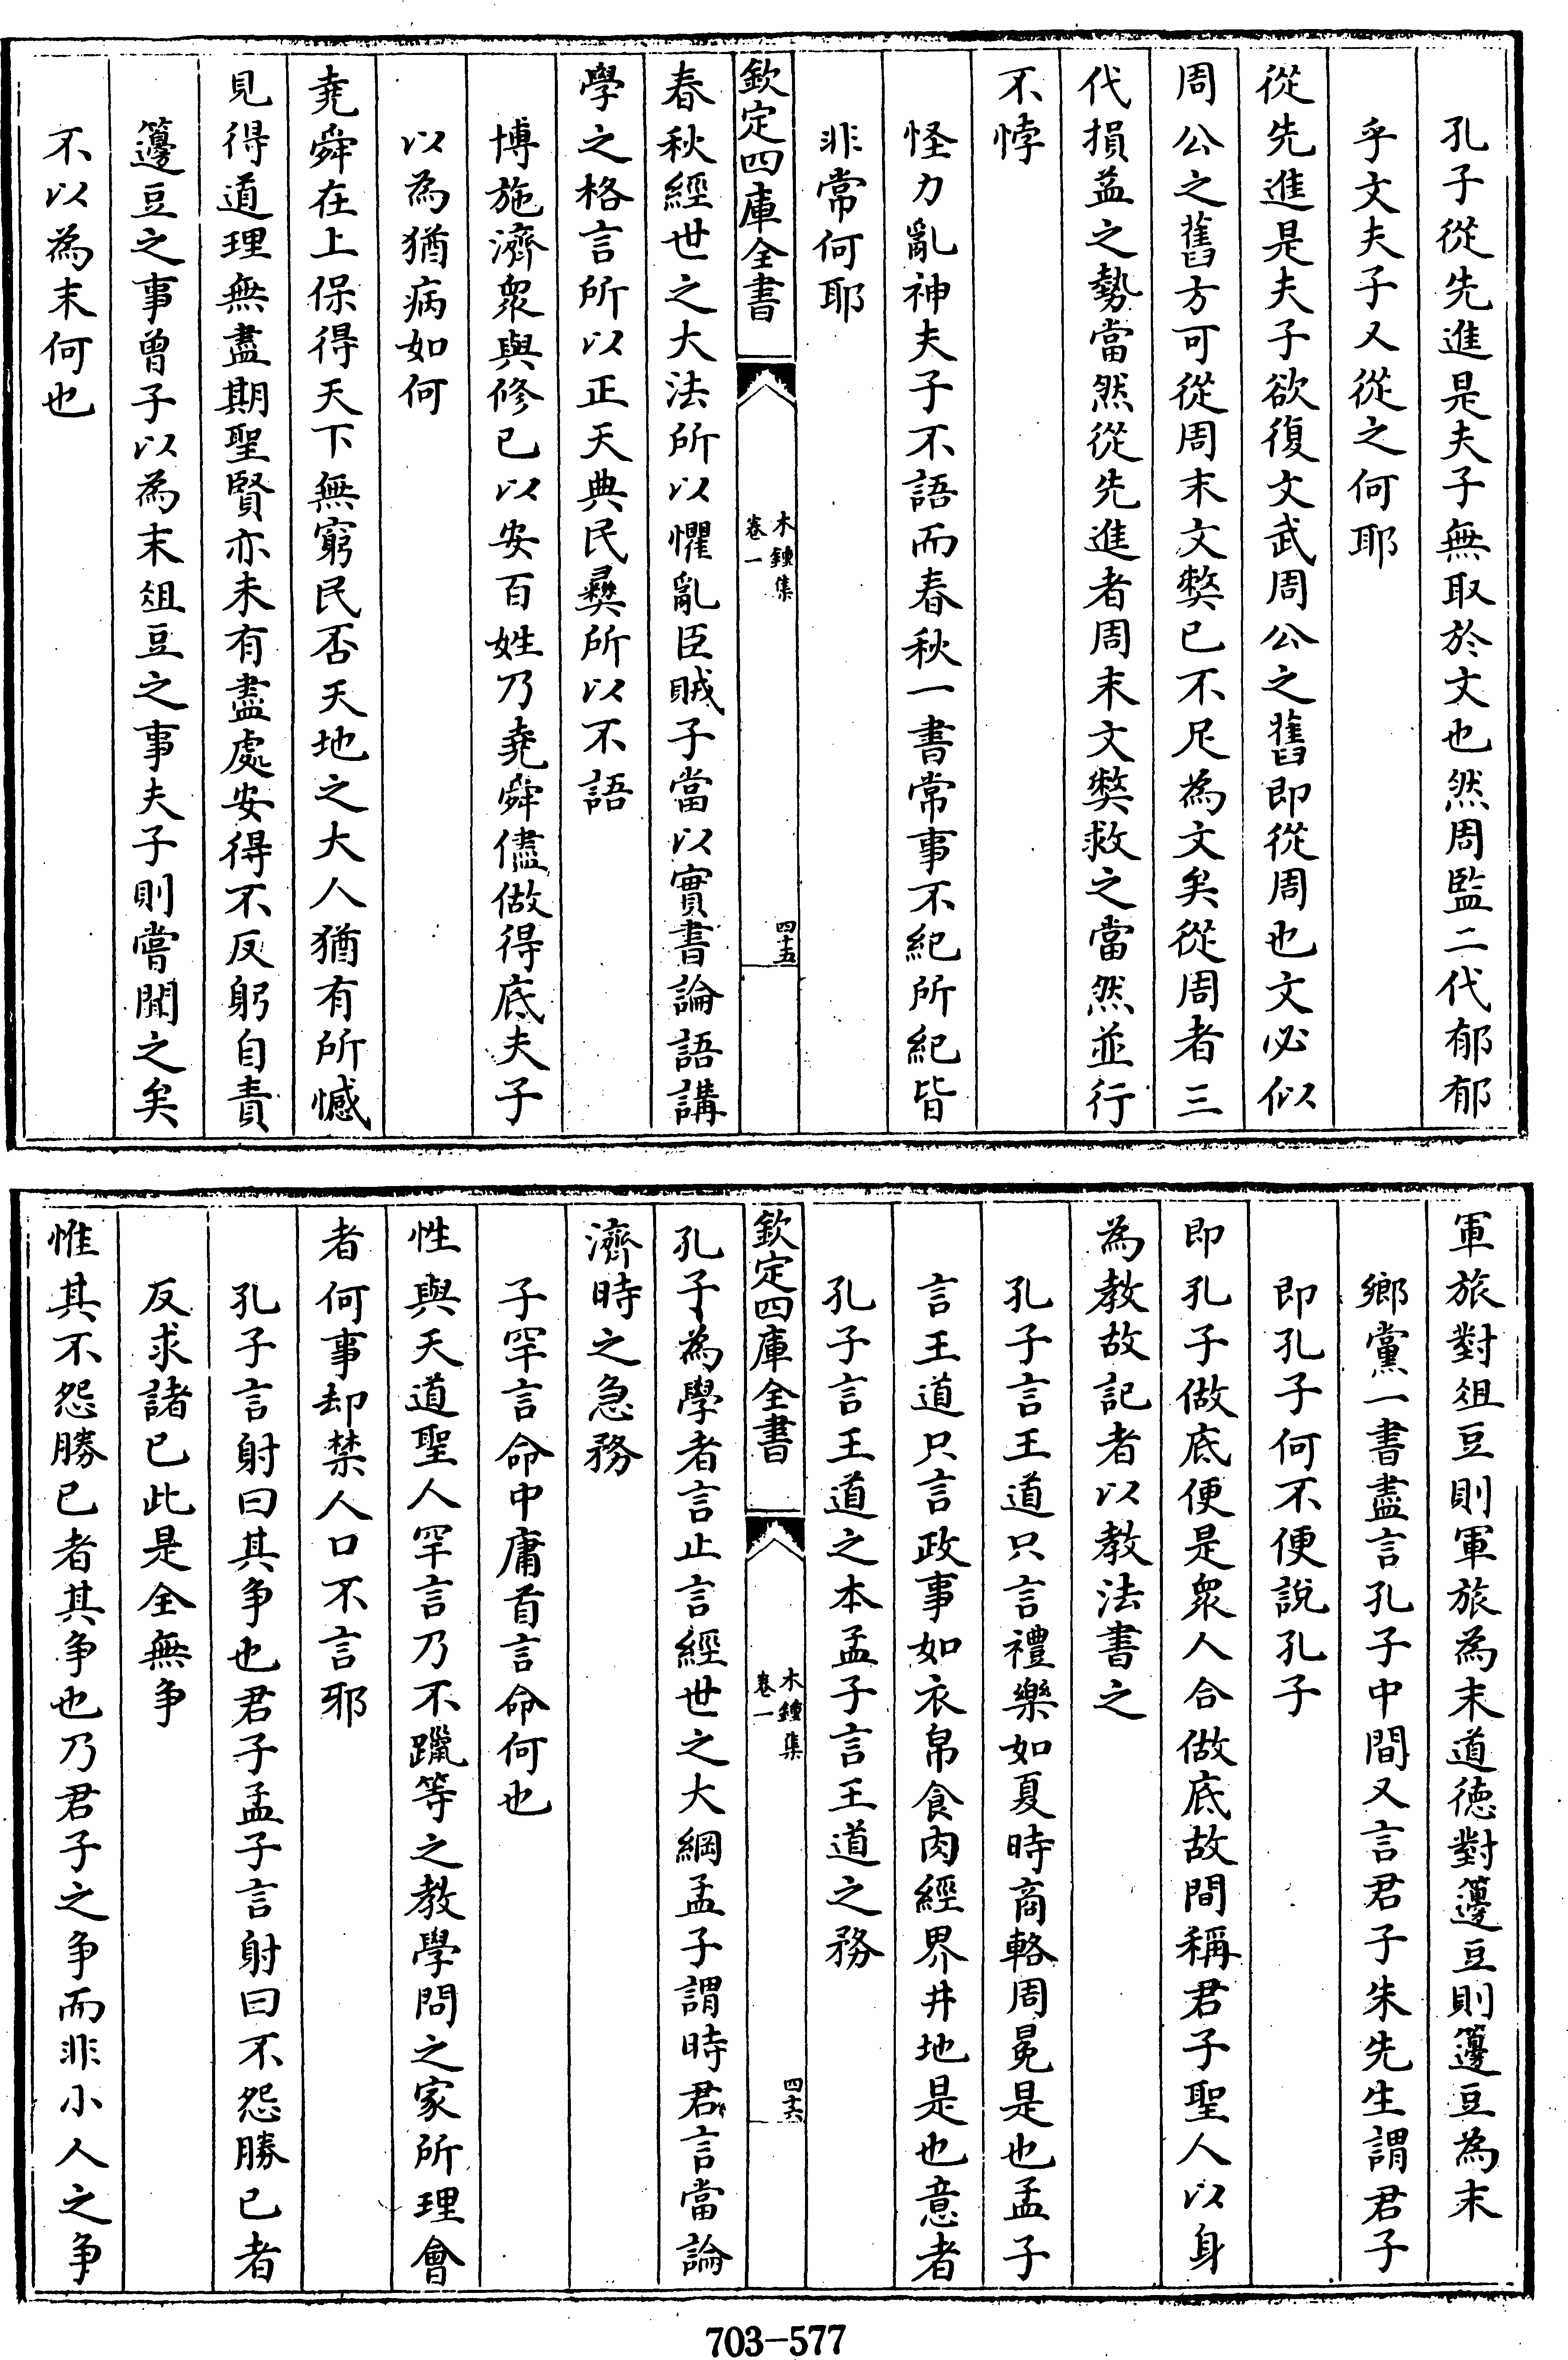 孔子從先進是夫子無取於文也然周監二代郁郁
乎文夫子又從之何耶
從先進是夫子欲復文武周公之舊即從周也文必似
周公之舊方可從周末文弊已不足為文矣從周者三
代損益之勢當然從先進者周末文弊救之當然並行
不悖
怪力亂神夫子不語而春秋一書常事不紀所紀皆
非常何耶
欽定四庫全書
木鍾集
卷一
四十五
春秋經世之大法所以懼亂臣賊子當以實書論語講
學之格言所以正天典民彛所以不語
博施濟衆與修已以安百姓乃堯舜儘做得底夫子
以為猶病如何
堯舜在上保得天下無窮民否天地之大人猶有所憾
見得道理無盡期聖賢亦未有盡處安得不反躬自責
籩豆之事曾子以為末俎豆之事夫子則嘗聞之矣
不以為末何也
軍旅對俎豆則軍旅為末道徳對籩豆則籩豆為末
鄉黨一書盡言孔子中間又言君子朱先生謂君子
即孔子何不便說孔子
即孔子做底便是衆人合做底故間稱君子聖人以身
為教故記者以教法書之
孔子言王道只言禮樂如夏時商輅周冕是也孟子
言王道只言政事如衣帛食肉經界井地是也意者
孔子言王道之本孟子言王道之務
欽定四庫全書
木鍾集
卷一
四十六
孔子為學者言止言經世之大綱孟子謂時君言當論
濟時之急務
子罕言命中庸首言命何也
性與天道聖人罕言乃不躐等之教學問之家所理會
者何事却禁人口不言邪
孔子言射曰其争也君子孟子言射曰不怨勝已者
反求諸已此是全無争
惟其不怨勝已者其争也乃君子之争而非小人之争
703-577